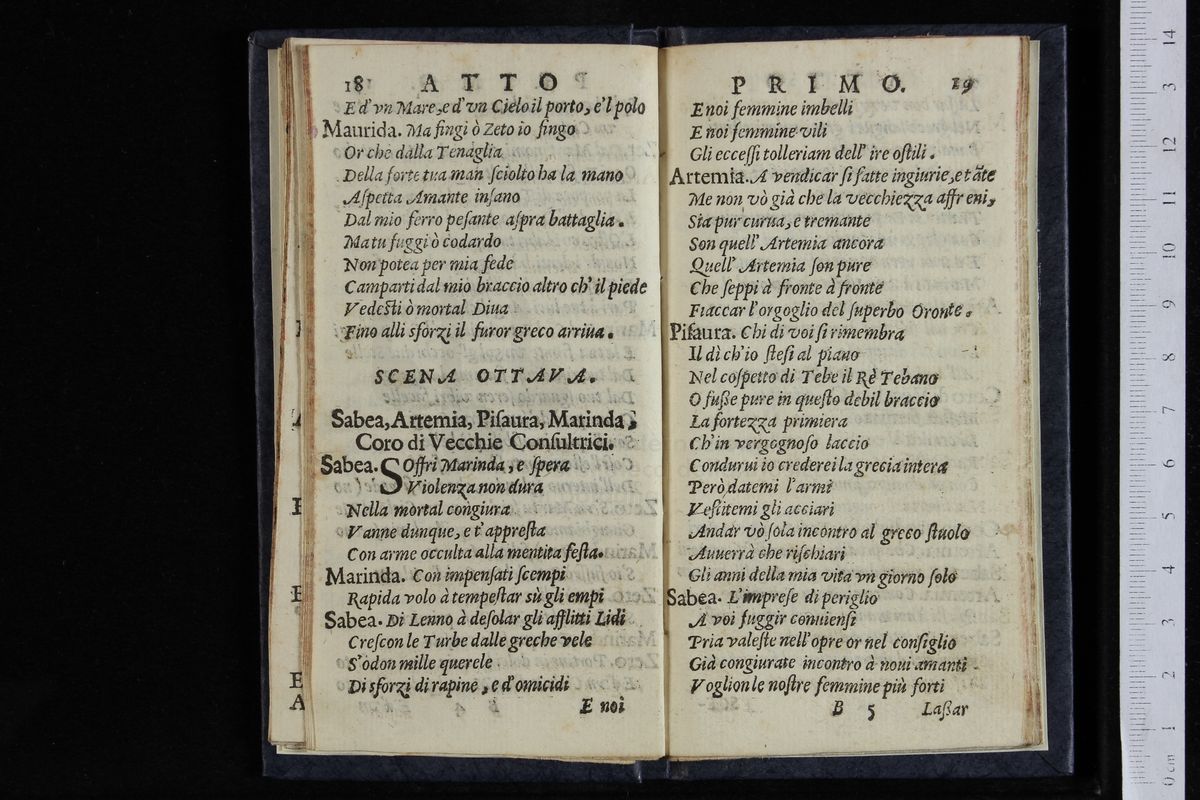 18 ATTO
E d'vn Mare, e d'vn Cielo il porto, e'l polo
Maurida. Ma fingi ò Zeto io fingo
Or che dalla Tenaglia
Della forte tua man ſciolto ha la mano
Aſpetta Amante inſano
Dal mio ferro peſante aſpra battaglia.
Ma tu fuggi ò codardo
Non potea per mia fede
Camparti dal mio braccio altro ch' il piede
Vedeſti ò mortal Diua
Fino alli sforzi il furor greco arriua.
SCENA OTTAVA.
Sabea, Artemia, Piſaura, Marinda,
Coro di Vecchie Conſultrici.
Sabea. SOffri Marinda, e ſpera
Violenza non dura
Nella mortal congiura
Vanne dunque, e t'appreſta
Con arme occulta alla mentita feſta.
Marinda. Con impenſati ſcempi
Rapida volo à tempeſtar sù gli empi
Sabea. Di Lenno à deſolar gli afflitti Lidi
Creſcon le Turbe dalle greche vele
S'odon mille querele
Di sforzi di rapine, e d'omicidi
E noi
PRIMO. 19
E noi femmine imbelli
E noi femmine vili
Gli ecceſſi tolleriam dell' ire oſtili.
Artemia. A vendicar ſi fatte ingiurie, e tãte
Me non vò già che la vecchiezza affreni,
Sia pur curua, e tremante
Son quell' Artemia ancora
Quell' Artemia ſon pure
Che ſeppi à fronte à fronte
Fiaccar l'orgoglio del ſuperbo Oronte.
Piſaura. Chi di voi ſi rimembra
Il dì ch'io ſteſi al piano
Nel coſpetto di Tebe il Rè Tebano
O fuſſe pure in queſto debil braccio
La fortezza primiera
Ch'in vergognoſo laccio
Condurui io crederei la grecia intera
Però datemi l'armi
Veſtitemi gli acciari
Andar vò ſola incontro al greco ſtuolo
Auuerrà che riſchiari
Gli anni della mia vita vn giorno ſolo
Sabea. L'impreſe di periglio
A voi fuggir conuienſi
Pria valeſte nell'opre or nel conſiglio
Già congiurate incontro à noui amanti
Voglion le noſtre femmine più forti
B 5 Laſſar